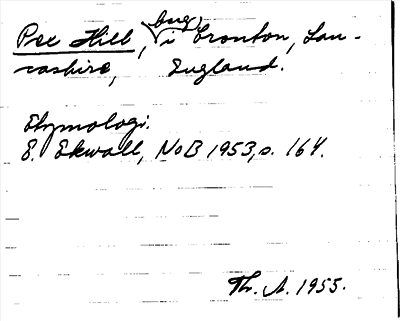 Pex Hill, bug, i Cronton, Lan-
cashire, England.
Etymologi.
E. Ekwall, NoB 1953, s. 164.
Th. A. 1955.